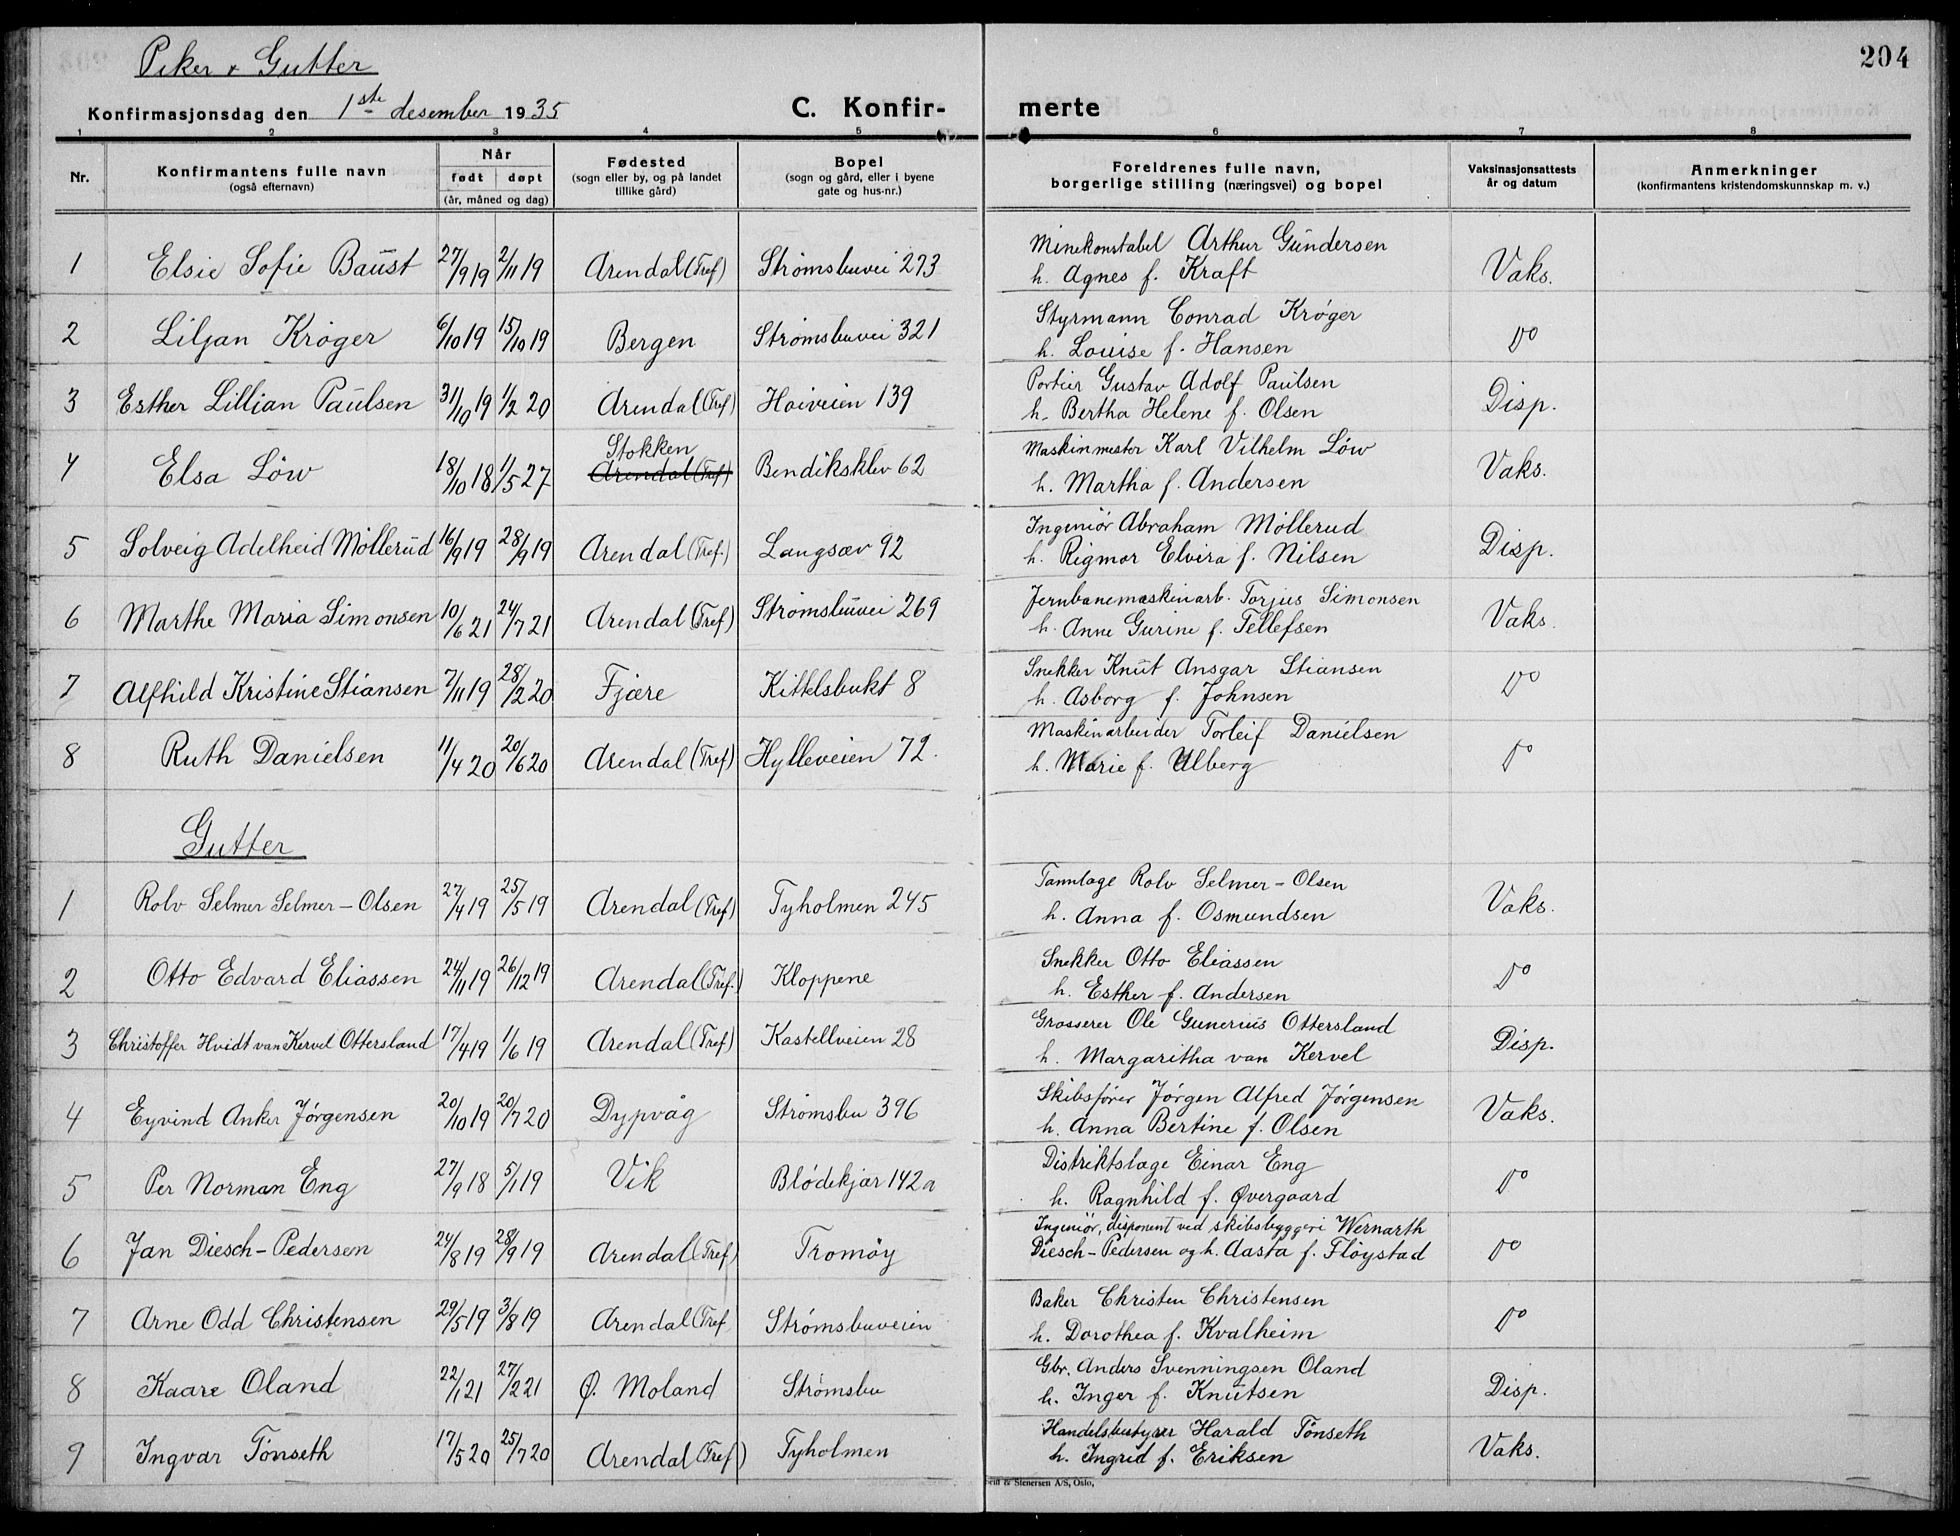 204
Piker & Gutter
Konfirmasjonsdag den 1ste desember 1935 C. Konfirmerte
1 2 3 4 5 6 7 8
Nr. Konfirmantens fulle navn (også efternavn) Når født døpt (år, måned og dag) Fødested (sogn eller by, og på landet tillike gård) Bopel (sogn og gård, eller i byene gate og hus-nr.) Foreldrenes fulle navn, borgerlige stilling (næringsvei) og bopel Vaksinasjonsattests år og datum Anmerkninger (konfirmantens kristendomskunnskap m. v.)
1 Elsie Sofie Baust 27/9 19 2/11 19 Arendal (Tref) Strømsbuvei 273 Minekonstabel Arthur Gundersen
h. Agnes f. Kraft Vaks.
2 Liljan Krøger 6/10 19 15/10 19 Bergen Strømsbuvei 321 Styrmann Conrad Krøger
h. Louise f. Hansen Do
3 Esther Lillian Paulsen 31/10 19 1/2 20 Arendal (Tref) Høiveien 139 Portier Gustav Adolf Paulsen
h. Bertha Helene f. Olsen Disp.
4 Elsa Löw 18/10 18 1/5 27 Stokken Arendal (Tref) Bendiksklev 62 Maskinmester Karl Vilhelm Löw
h. Martha f. Andersen Vaks.
5 Solveig Adelheid Møllerud 16/9 19 28/9 19 Arendal (Tref.) Langsæv 92 Ingeniør Abraham Møllerud
h. Rigmor Elvira f. Nilsen Disp.
6 Marthe Maria Simonsen 10/6 21 24/7 21 Arendal (Tref) Strømsbuvei 269 Jernbanemaskinarb. Torjus Simonsen
h. Anne Gurine f. Tellefsen Vaks.
7 Alfhild Kristine Stiansen 7/11 19 28/2 20 Fjære Kittelsbukt 8 Snekker Knut Ansgar Stiansen
h. Asborg f. Johnsen Do
8 Ruth Danielsen 11/4 20 20/6 20 Arendal (Tref) Hylleveien 72. Maskinarbeider Torleif Danielsen
h. Marie f. Ulberg Do
Gutter
1 Rolv Selmer Selmer-Olsen 27/4 19 25/5 19 Arendal (Tref) Tyholmen 245 Tannlæge Rolv Selmer-Olsen
h. Anna f. Osmundsen Vaks.
2 Otto Edvard Eliassen 24/11 19 26/12 19 Arendal (Tref.) Kloppene Snekker Otto Eliassen
h. Esther f. Andersen Do
3 Christoffer Hvidt van Kervel Ottersland 17/4 19 1/6 19 Arendal (Tref) Kastellveien 28 Grosserer Ole Gunerius Ottersland
h. Margaritha van Kervel Disp.
4 Eyvind Anker Jørgensen 20/10 19 20/7 20 Dypvåg Strømsbu 396 Skibsfører Jørgen Alfred Jørgensen
h. Anna Bertine f. Olsen Vaks.
5 Per Norman Eng 27/9 18 5/1 19 Vik Blødekjær 142a Distriktslæge Einar Eng
h. Ragnhild f. Øvergaard Do
6 Jan Diesch-Pedersen 24/8 19 28/9 19 Arendal (Tref) Tromøy Ingeniør, disponent ved skibsbyggeri Wernarth
Diesch-Pedersen og h. Aasta f. Fløystad Do
7 Arne Odd Christensen 29/5 19 3/8 19 Arendal (Tref Strømsbuveien Baker Christen Christensen
h. Dorothea f. Kvalheim Do
8 Kaare Oland 22/1 21 27/2 21 Ø. Moland Strømsbu Gbr. Anders Svenningsen Oland
h. Inger f. Knutsen Disp.
9 Ingvar Tønseth 17/5 20 25/7 20 Arendal (Tref) Tyholmen Handelsbestyrer Harald Tønseth
h. Ingrid f. Eriksen Vaks.
& Stenersen A/S, Oslo,